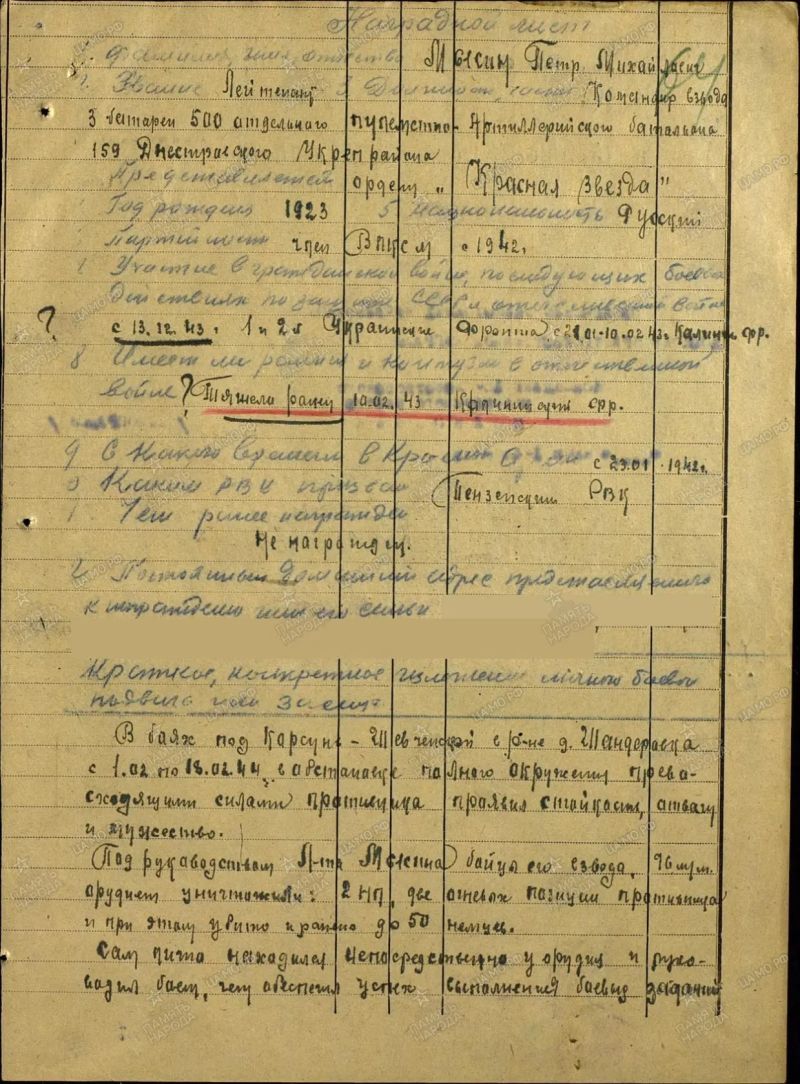 Наградной лист
Фамилия, имя, отчество Мокин Петр Михайлович
2. Звание Лейтенант 3 Должность, часть Командир взвода
3 батареи 500 отдельного пулеметно-Артиллерийского батальона
159 Днестровского Укрепрайона
Представляется ордену „Красная Звезда"
Год рождения 1923 5 национальность Русский
Партийность член ВЛКСМ с 1942г.
Участие в гражданской войне, последующих боевых
действиях по защите СССР и отечественной войне
? с 13.12.43г 1 и 2й Украинские Фронта, с 21.01-10.02.43г Калинин фр.
8 Имеет ли ранения и контузии в отечественной
войне ? Тяжело ранен 10.02.43 Калининский фр.
9 С какого времени в Красной Армии с 23.01.1942г.
Каким РВК призван Пензенским РВК
Чем ранее награжден
Не награжден.
2 Постоянный домашний адрес представляемого
к награждению или его семьи
Краткое, конкретное изложение личного боевого
подвига или заслуг
В боях под Карсунь-Шевченской в р-не д. Шандеровка
с 1.02 по 18.02.44г. в обстановке полного окружения прева-
сходящими силами противника проявил стойкость, отвагу
и мужество.
Под руководством Л-та Мокина бойцы его взвода, 76 м.м.
орудием уничтожили: 2 НП, две огневых позиции противника
и при этом убито и ранено до 50 немцев.
Сам лично находился непосредственно у орудия и руко-
водил боем, чем обеспечил успех выполнения боевых заданий
ПАМЯТЬ НАРОДА
ЦАМО.РФ